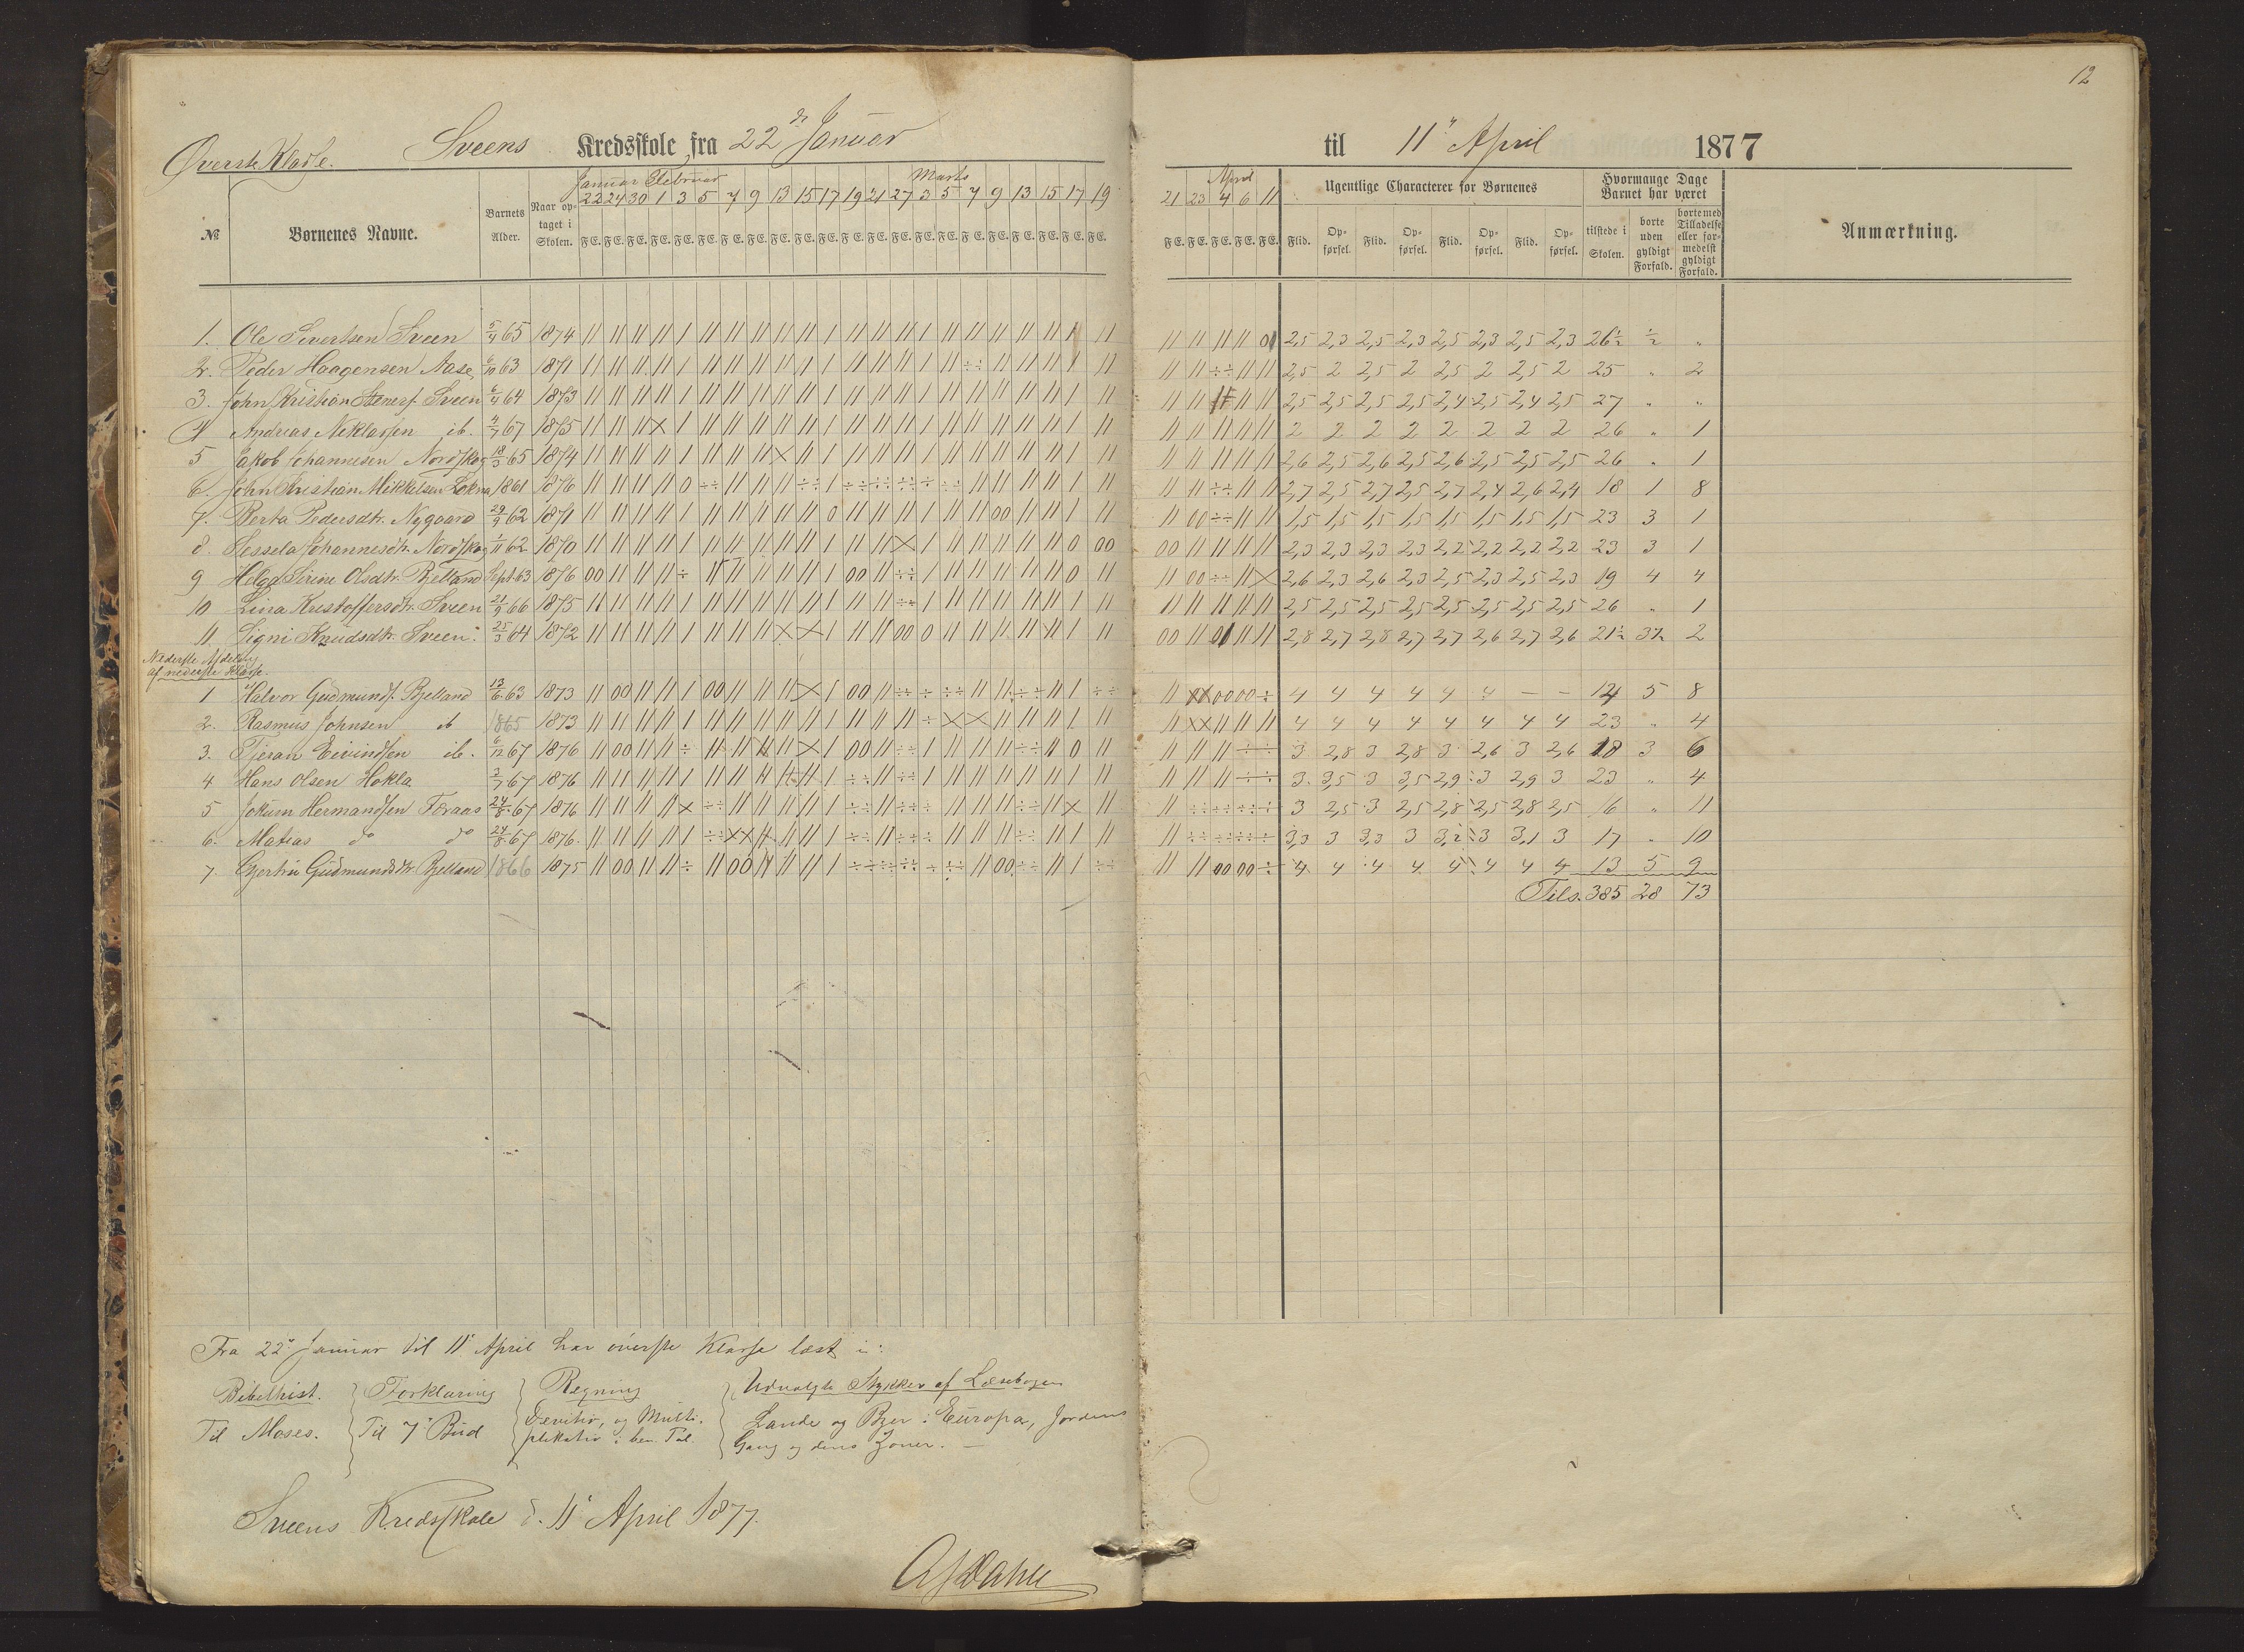 12
Sveens Kredsskole fra 22de Januar til 11te April 1877
Øverste Klasse.
Januar Februar Marts April
№ Børnenes Navne. Barnets Alder. Naar optaget i Skolen. 22 24 30 1 3 5 7 9 13 15 17 19 21 27 3 5 7 9 13 15 17 19 21 23 4 6 11 Ugentlige Characterer for Børnenes Hvormange Dage Barnet har været Anmærkning.
F E. F E. F E. F E. F E. F E. F E. F E. F E. F E. F E. F E. F E. F E. F E. F E. F E. F E. F E. F E. F E. F E. F E. F E. F E. F E. F E. Flid. Opførsel. Flid. Opførsel. Flid. Opførsel. Flid. Opførsel. tilstede i Skolen. borte uden gyldigt Forfald. borte med Tilladelse eller formedelst gyldigt Forfald.
1. Ole Sivertsen Sveen 5/4 65 1874 2,5 2,3 2,5 2,3 2,5 2,3 2,5 2,3 26½ ½ "
2. Peder Haagensen Aase 6/10 63 1871 2,5 2 2,5 2 2,5 2 2,5 2 25 " 2
3. John Kristian Steners. Sveen 6/4 64 1873 2,5 2,5 2,5 2,5 2,4 2,5 2,4 2,5 27 " "
4 Andreas Niklassen ib. 4/7 67 1875 2 2 2 2 2 2 2 2 26 " 1
5 Jakob Johannesen Nordskog 18/3 65 1874 2,6 2,5 2,6 2,5 2,6 2,5 2,5 2,5 26 " 1
6. John Kristian Mikkelsen 1861 1876 2,7 2,5 2,7 2,5 2,7 2,4 2,6 2,4 18 1 8
7. Berta Pedersdtr. Nygaard 29/9 62 1871 1,5 1,5 1,5 1,5 1,5 1,5 1,5 1,5 23 3 1
8. Sessela Johannesdtr. Nordskog 1/11 62 1870 2,3 2,3 2,3 2,3 2,2 2,2 2,2 2,2 23 3 1
9 Helga Serine Olsdtr. Bjelland Sept. 63 1876 2,6 2,3 2,6 2,3 2,5 2,3 2,5 2,3 19 4 4
10 Lina Kristoffersdtr. Sveen 21/9 66 1875 2,5 2,5 2,5 2,5 2,5 2,5 2,5 2,5 26 " 1
11 Signi Knudsdtr. Sveen 25/3 64 1872 2,8 2,7 2,8 2,7 2,7 2,6 2,7 2,6 21½ 3½ 2
Nederste Afdeling
af nederste Klasse.
1 Halvor Gudmunds. Bjelland 13/6 63 1873 4 4 4 4 4 4 – – 14 5 8
2. Rasmus Johnsen ib 1865 1873 4 4 4 4 4 4 4 4 23 " 4
3. Eivindsen ib. 6/12 67 1876 3 2,8 3 2,8 3 2,6 3 2,6 18 3 6
4 Hans Olsen Hokla 2/7 67 1876 3 3,5 3 3,5 2,9 3 2,9 3 23 " 4
5 Jokum Hermandsen Færaas 24/8 67 1876 3 2,5 3 2,5 2,8 2,5 2,8 2,5 16 " 11
6. Matias do do 24/8 67 1876 3,3 3 3,3 3 3,2 3 3,1 3 17 " 10
7 Gjertru Gudmundsdtr. Bjelland 1866 1875 4 4 4 4 4 4 4 4 13 5 9
Tils. 385 28 73
Fra 22de Januar til 11te April har øverste Klasse læst i:
Bibelhist. Forklaring Regning Udvalgte Stykker af Læsebogen
Til Moses. Til 7de Bud Devisio, og Multiplikatio i ben. Tal. Lande og Byer i Europa, Jordens
Gang og dens Zoner. –
Sveens Kredsskole d. 11te April 1877.